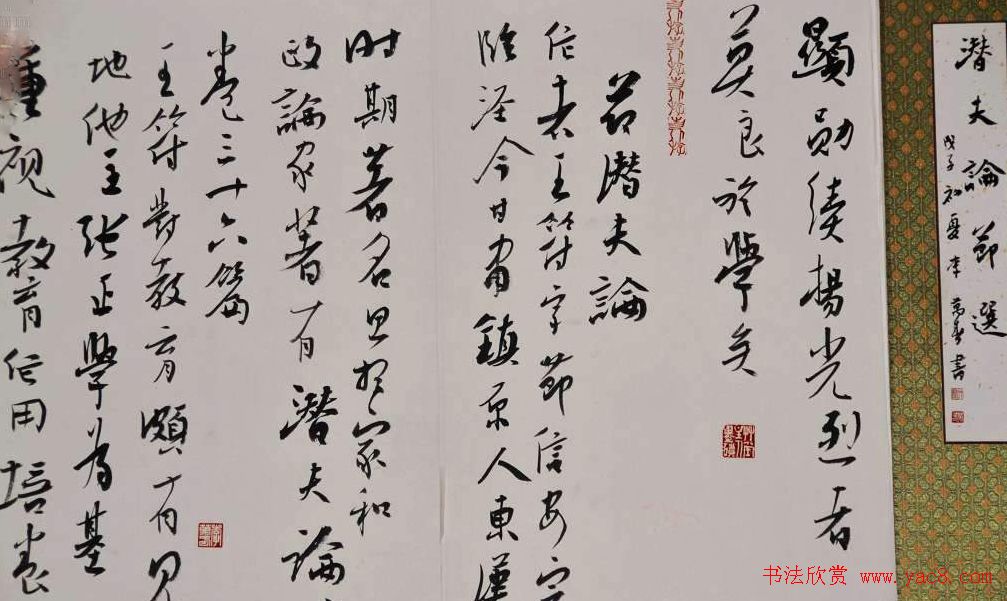 潜夫論節選
戊子初夏李萬春書
顯勛績揚光烈者
莫良於學矣
节潜夫論
作者王符字節信安定
臨涇今甘肅鎮原人東漢
时期著名思想家和
政論家著有潜夫論
卷三十六篇
王符對教育頗有見
地他主张正學为基
重视教育作用培养
书法欣赏 www.yac8.com